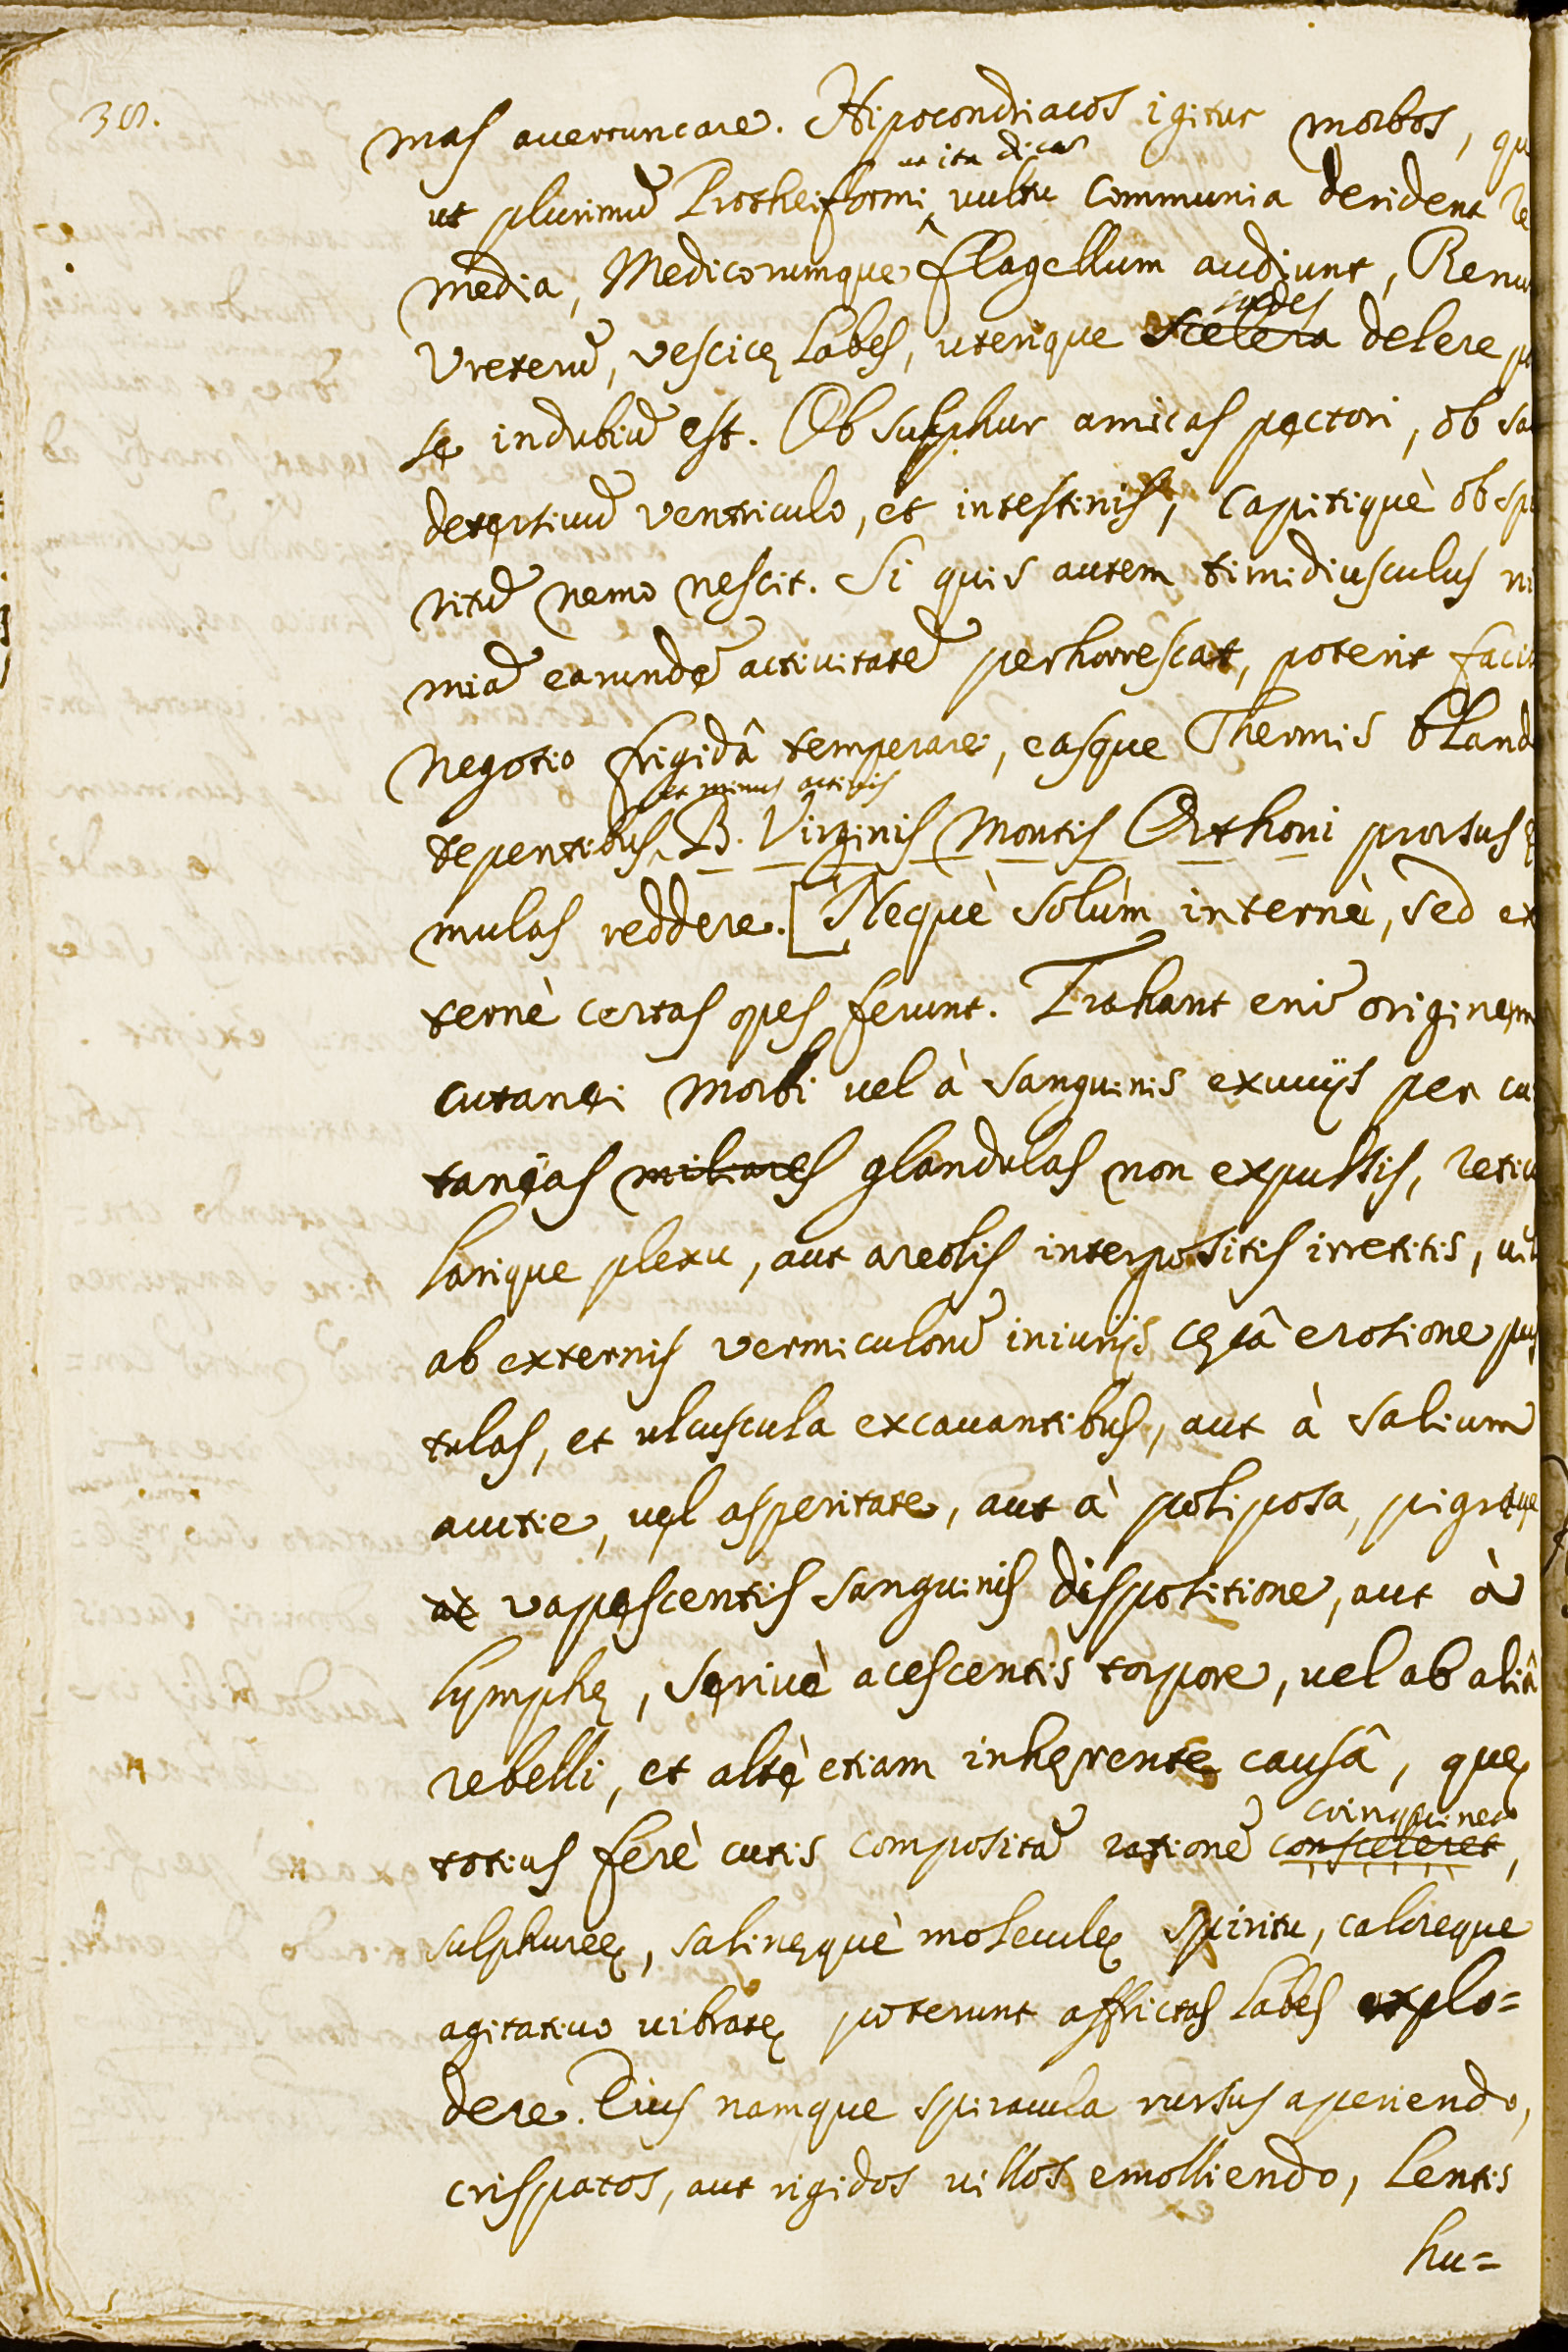 38.
mas averruncare. Hipocondriacos igitur morbos, qu
ut ita dicã
ut plurimũ Protheiformi vultu communia derident re
media, Medicorumque flagellum audiunt, Renu
sordes
Ureterũ, vescicę labes, uterique scelera delere po
se indubiũ est. Ob sulphur amicas pectori, ob sa
detersivũ ventriculo, et intestinis, capitiquè ob spi
ritũ nemo nescit. Si quis autem timidiusculus ni
miã earundẽ activitatẽ perhorrescat, poterit facil
negotio frigidâ temperare, easque Thermis bland
et minus activis
tepentibus B. Virginis Montis Orthoni prorsus ę
mulas reddere. [Nequè solùm internè, sed ex
ternè certas opes ferunt. Trahant enĩ originem
cutanei morbi vel à sanguinis exuvijs per cu
taneas miliares glandulas non expulsis, reticu
larique plexu, aut areolis interpositis irretitis, vel
ab externis vermiculorũ iniurijs cęcâ erosione pus
tulas, et ulcuscula excavantibus, aut à salium
acutie, vel asperitate, aut à poliposa, pigraque
ac vapescentis sanguinis dispositione, aut à
lymphę, serivè acescentis torpore, vel ab aliâ
rebelli, et altè etiam inhęrente causâ, quę
coinquinet
totius ferè cutis compositã rationẽ consceleret,
sulphureę, salinęquè moleculę spiritu, caloreque
agitativo vibratę poterunt afflictas labes explo=
dere. Eius namque spiracula rursus aperiendo,
crispatos, aut rigidos villos emolliendo, lentis
hu=